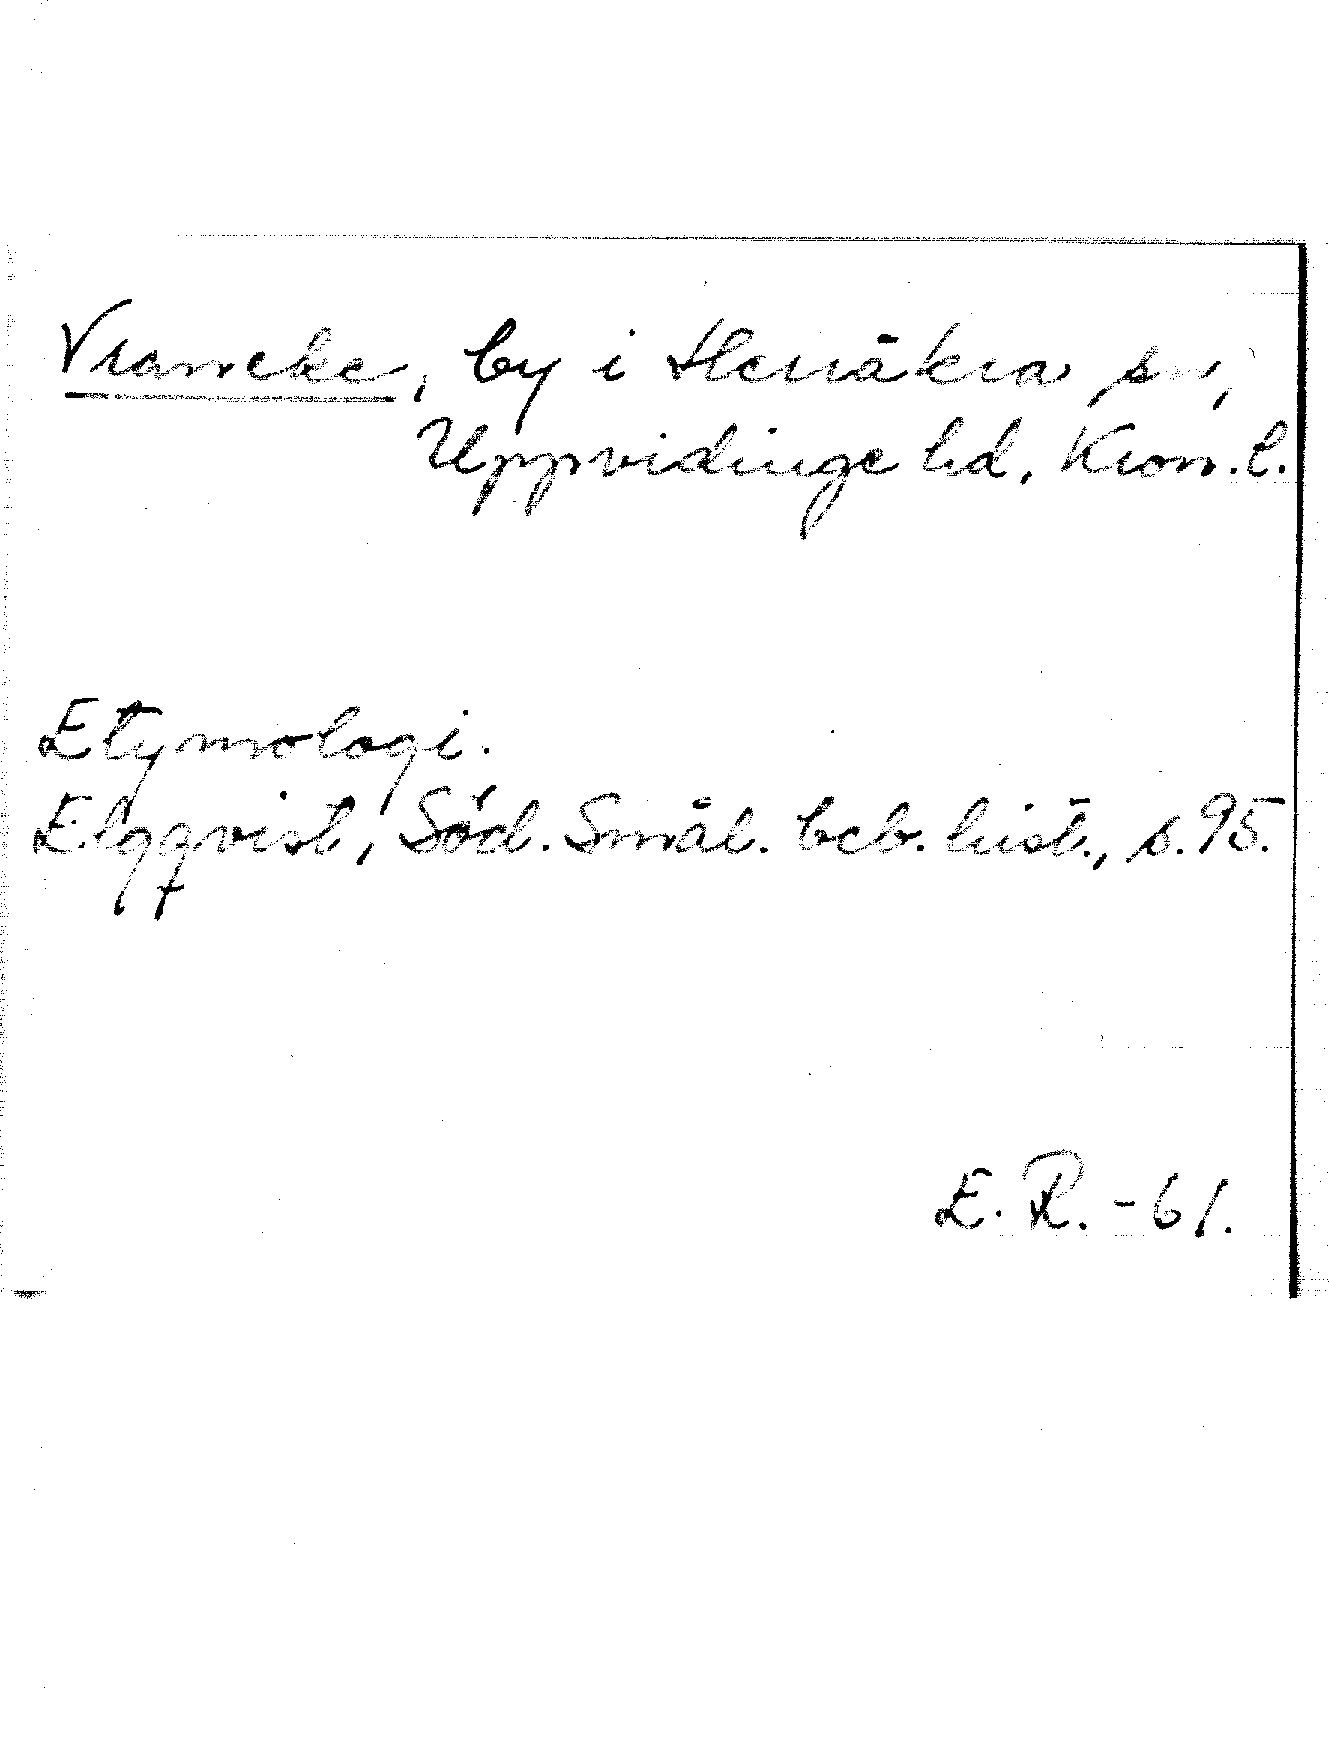 Vraneke, by i Herråkra sn,
Uppvidinge hd, Kron.l.
Etymologi.
Elgqvist, Söd. Smål. beb. hist., s. 95.
E. R. -61.